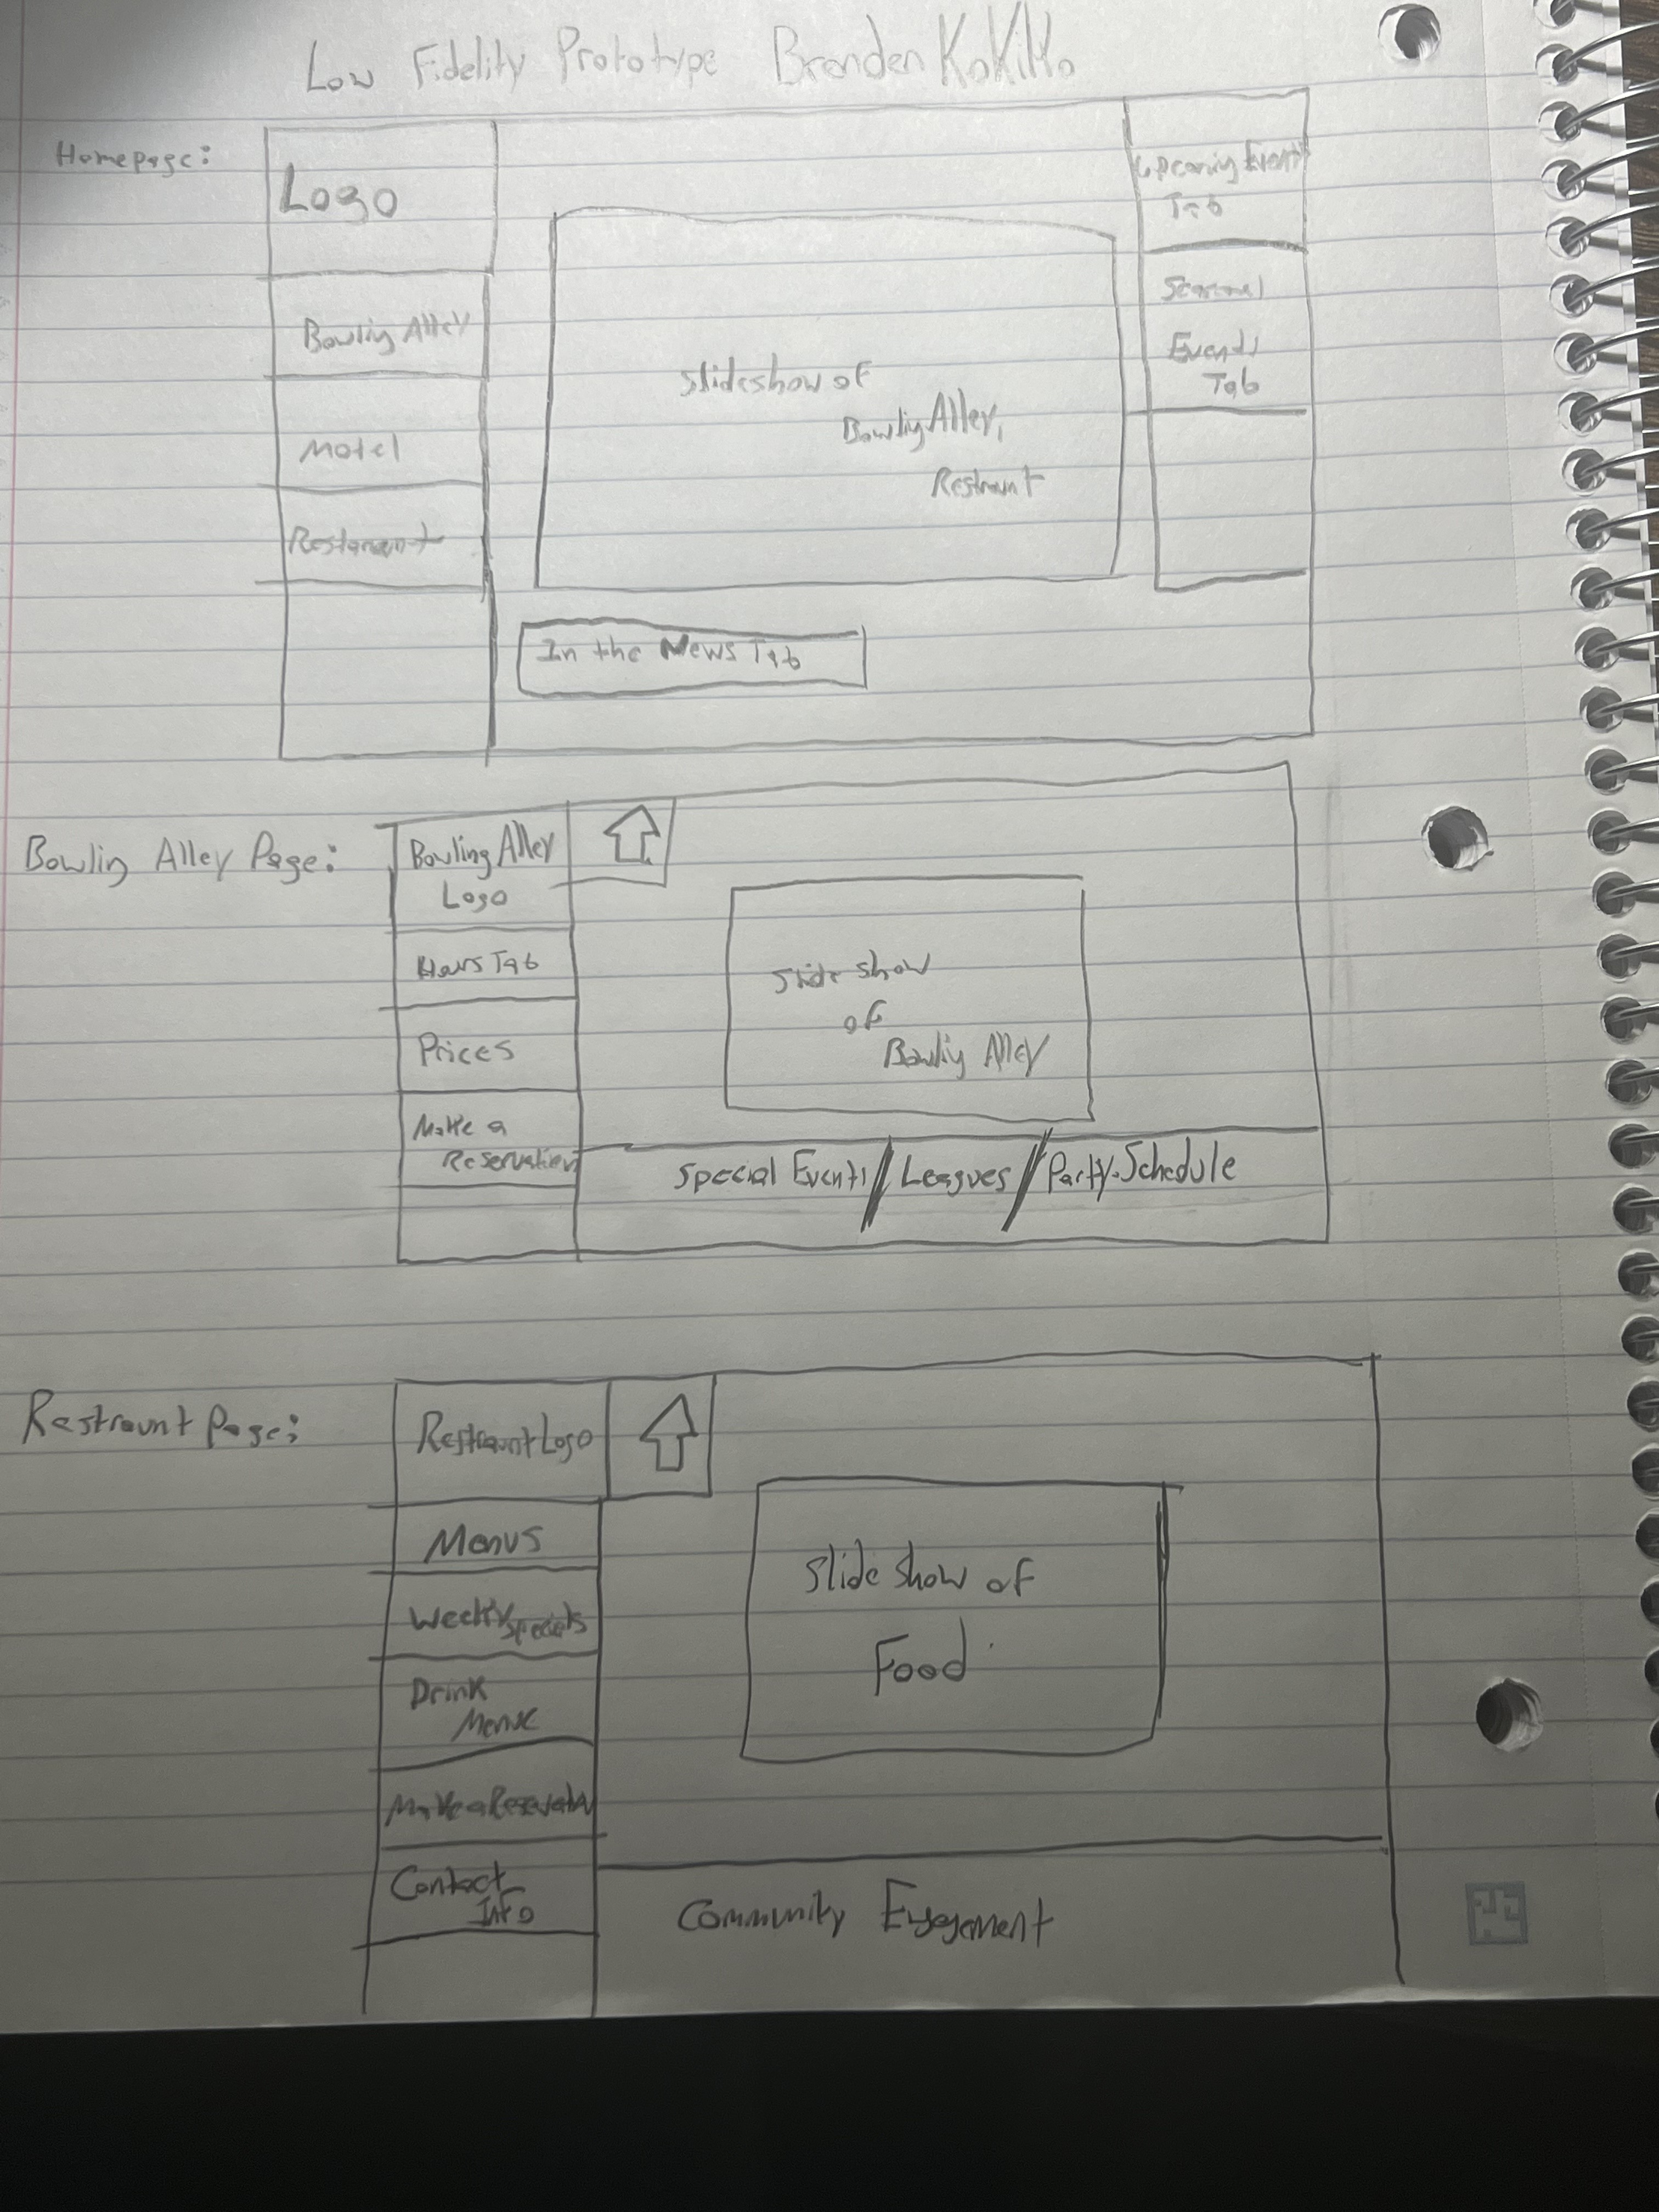 Low Fidelity Prototype Branden
Homepage:
Logo
Bowling Alley
Motel
Restaraunt
Slideshow of
Bowling Alley,
Restraunt
Upcoming Events
Tab
Seasonal
Events
Tab
In the News Tab
Bowling Alley Page:
Bowling Alley
Logo
Hours Tab
Prices
Make a
Reservation
Slide show
of
Bowling Alley
Special Events / Leagues / Party-Schedule
Restraunt Page:
Restraunt Logo
Menus
Weekly Specials
Drink
Menu
Make a Reservation
Contact
Info
Slide Show of
Food
Community Engagement